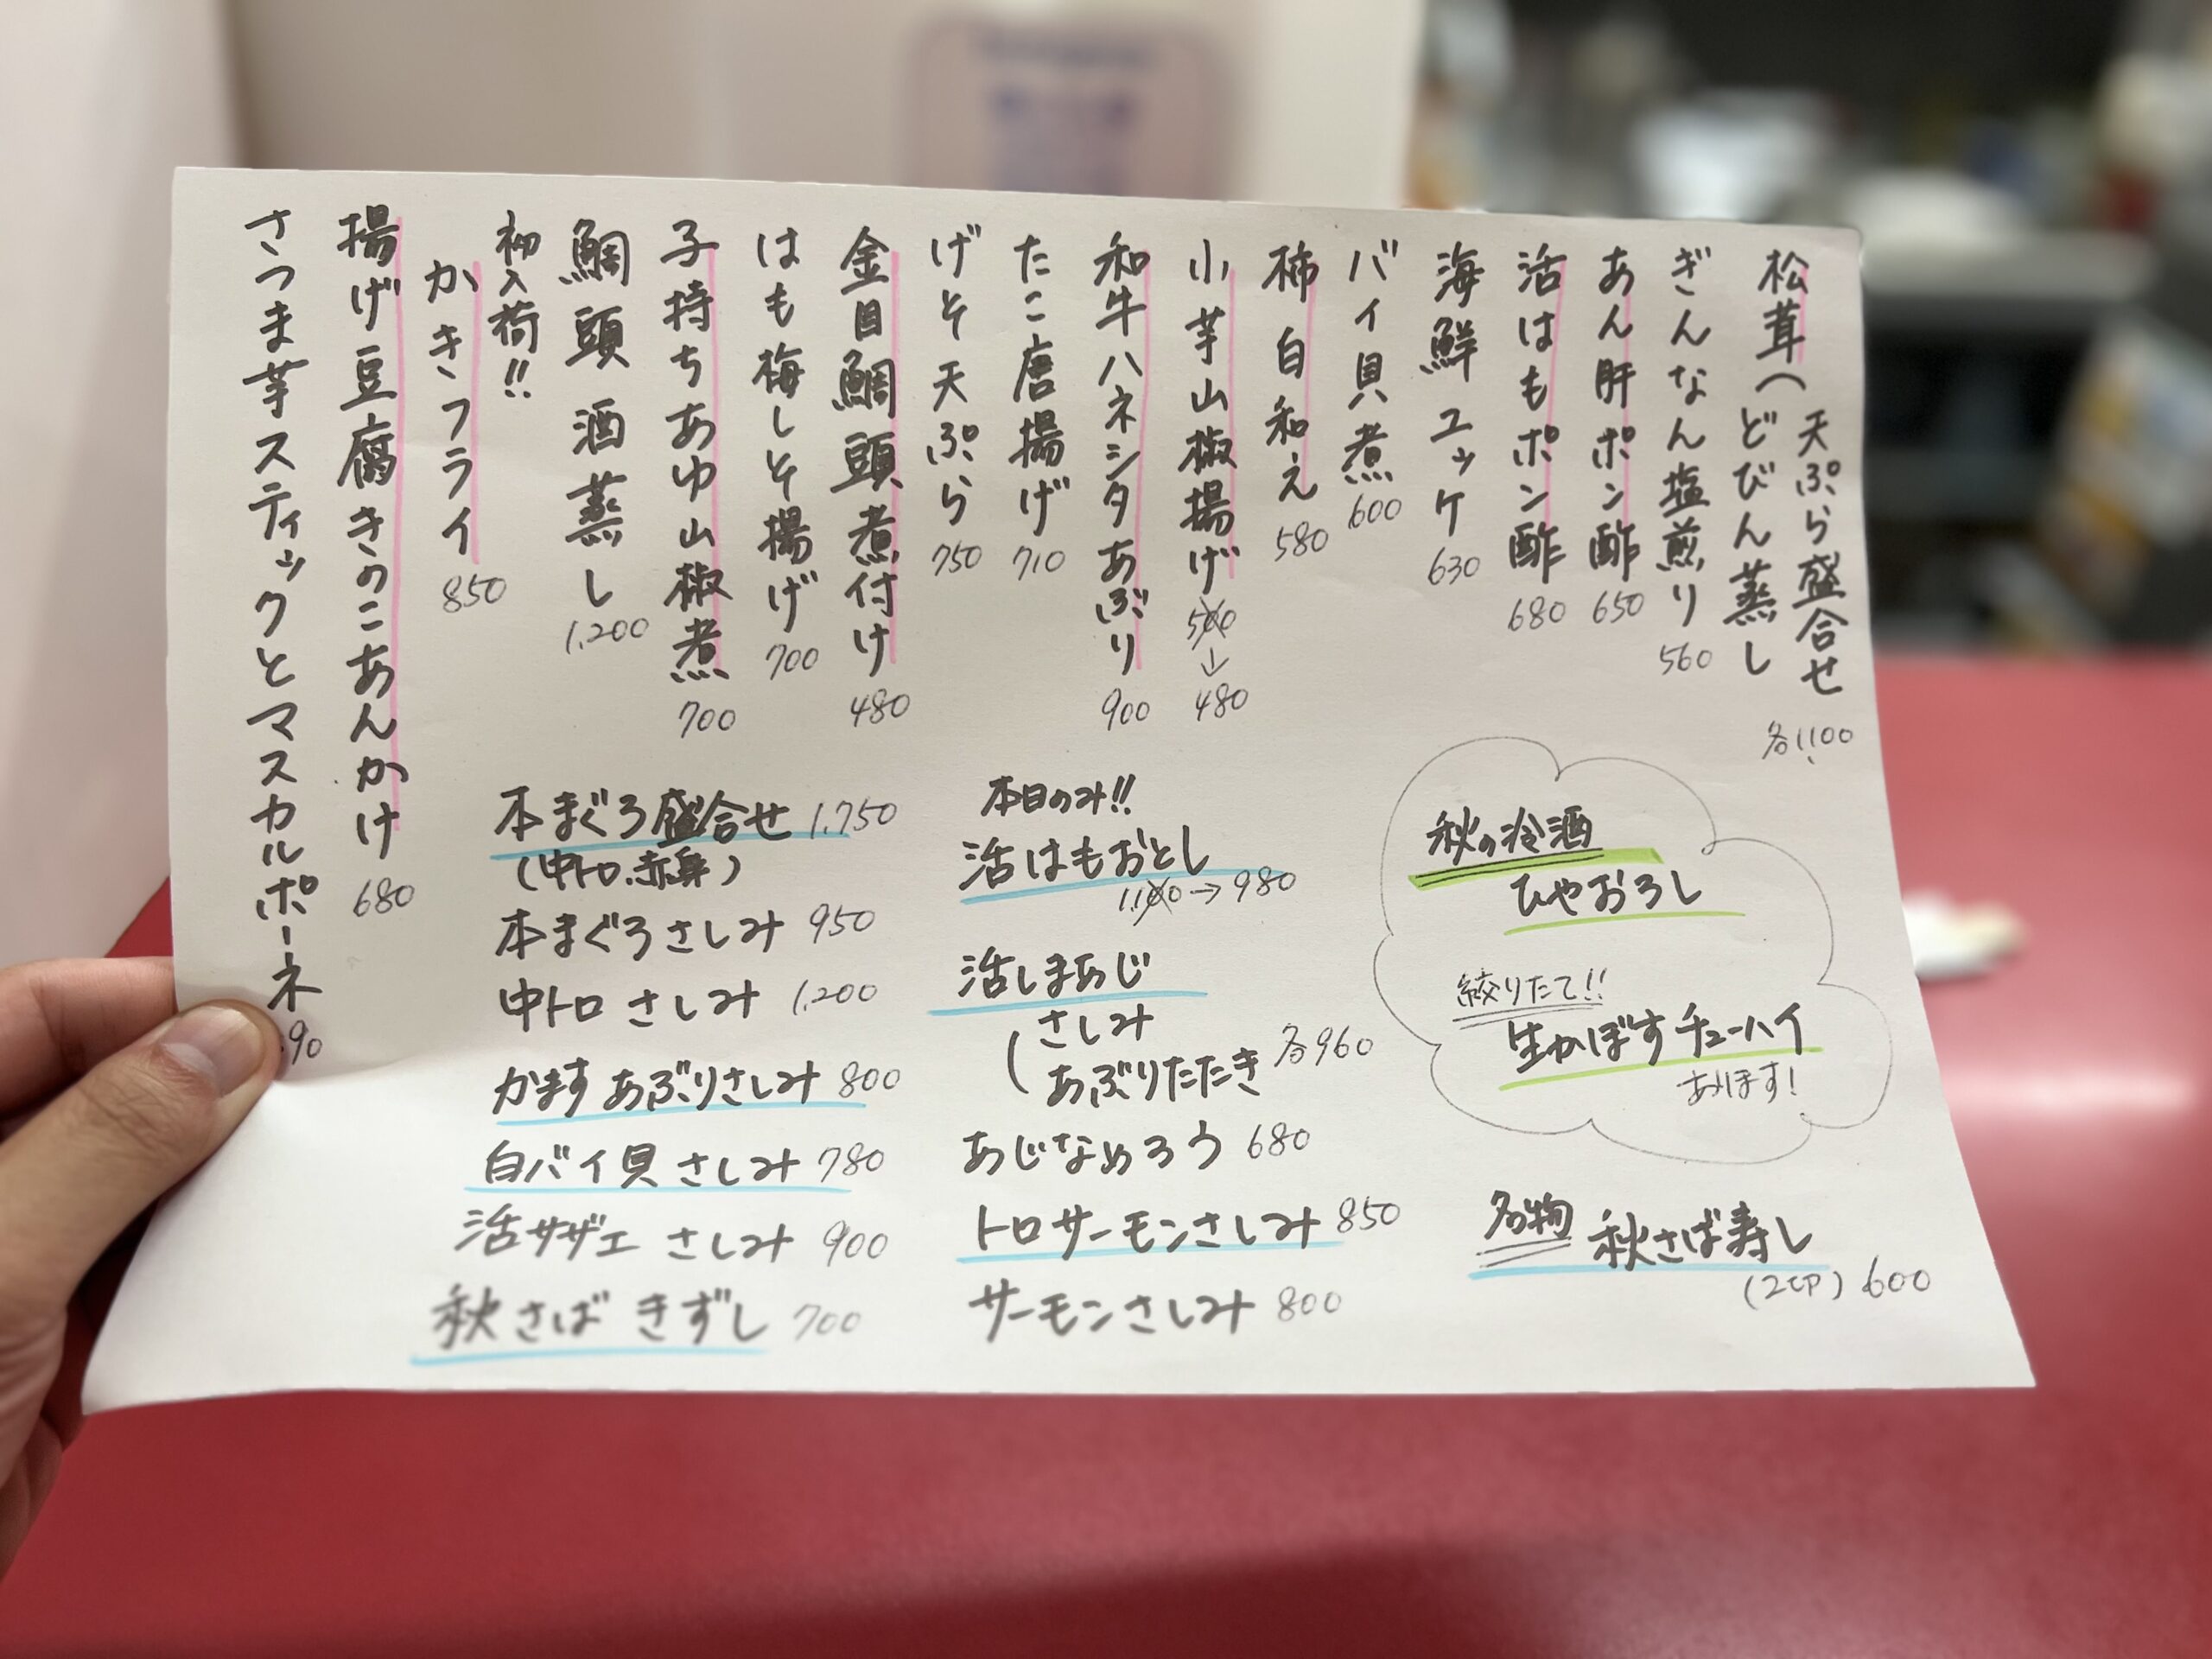 松茸 天ぷら盛合せ
どびん蒸し 各1,100
ぎんなん塩煎り 560
あん肝ポン酢 650
活はもポン酢 680
海鮮ユッケ 630
バイ貝煮 600
柿白和え 580
小芋山椒揚げ 500→480
和牛ハネシタあぶり 900
たこ唐揚げ 710
げそ天ぷら 750
金目鯛頭煮付け 480
はも梅しそ揚げ 700
子持ちあゆ山椒煮 700
鯛頭酒蒸し 1,200
初入荷!!
かきフライ 850
揚げ豆腐きのこあんかけ 680
さつま芋スティックとマスカルポーネ 90
本まぐろ盛合せ 1,750
(中トロ.赤身)
本まぐろさしみ 950
中トロ さしみ 1,200
かます あぶりさしみ 800
白バイ貝 さしみ 780
活サザエ さしみ 900
秋さば きずし 700
本日のみ!!
活はもおとし
1,100→980
活しまあじ
さしみ
あぶりたたき 各960
あじなめろう 680
トロサーモンさしみ 850
サーモンさしみ 800
秋の冷酒
ひやおろし
絞りたて!!
生かぼすチューハイ
あります!
名物 秋さば寿し
(2cp) 600